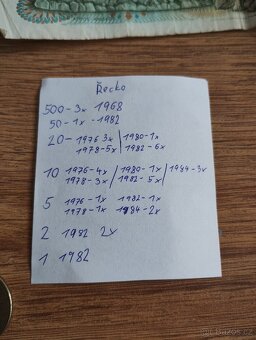 Řecko
500 - 3x 1968
50 - 1x - 1982
20 - 1976 3x | 1980 - 1x
1978 - 5x | 1982 - 6x
10 1976 - 4x / 1980 - 1x / 1984 - 3x
1978 - 3x / 1982 - 5x /
5 1976 - 1x 1982 - 1x
1978 - 1x 1984 - 2x
2 1982 2x
1 1982